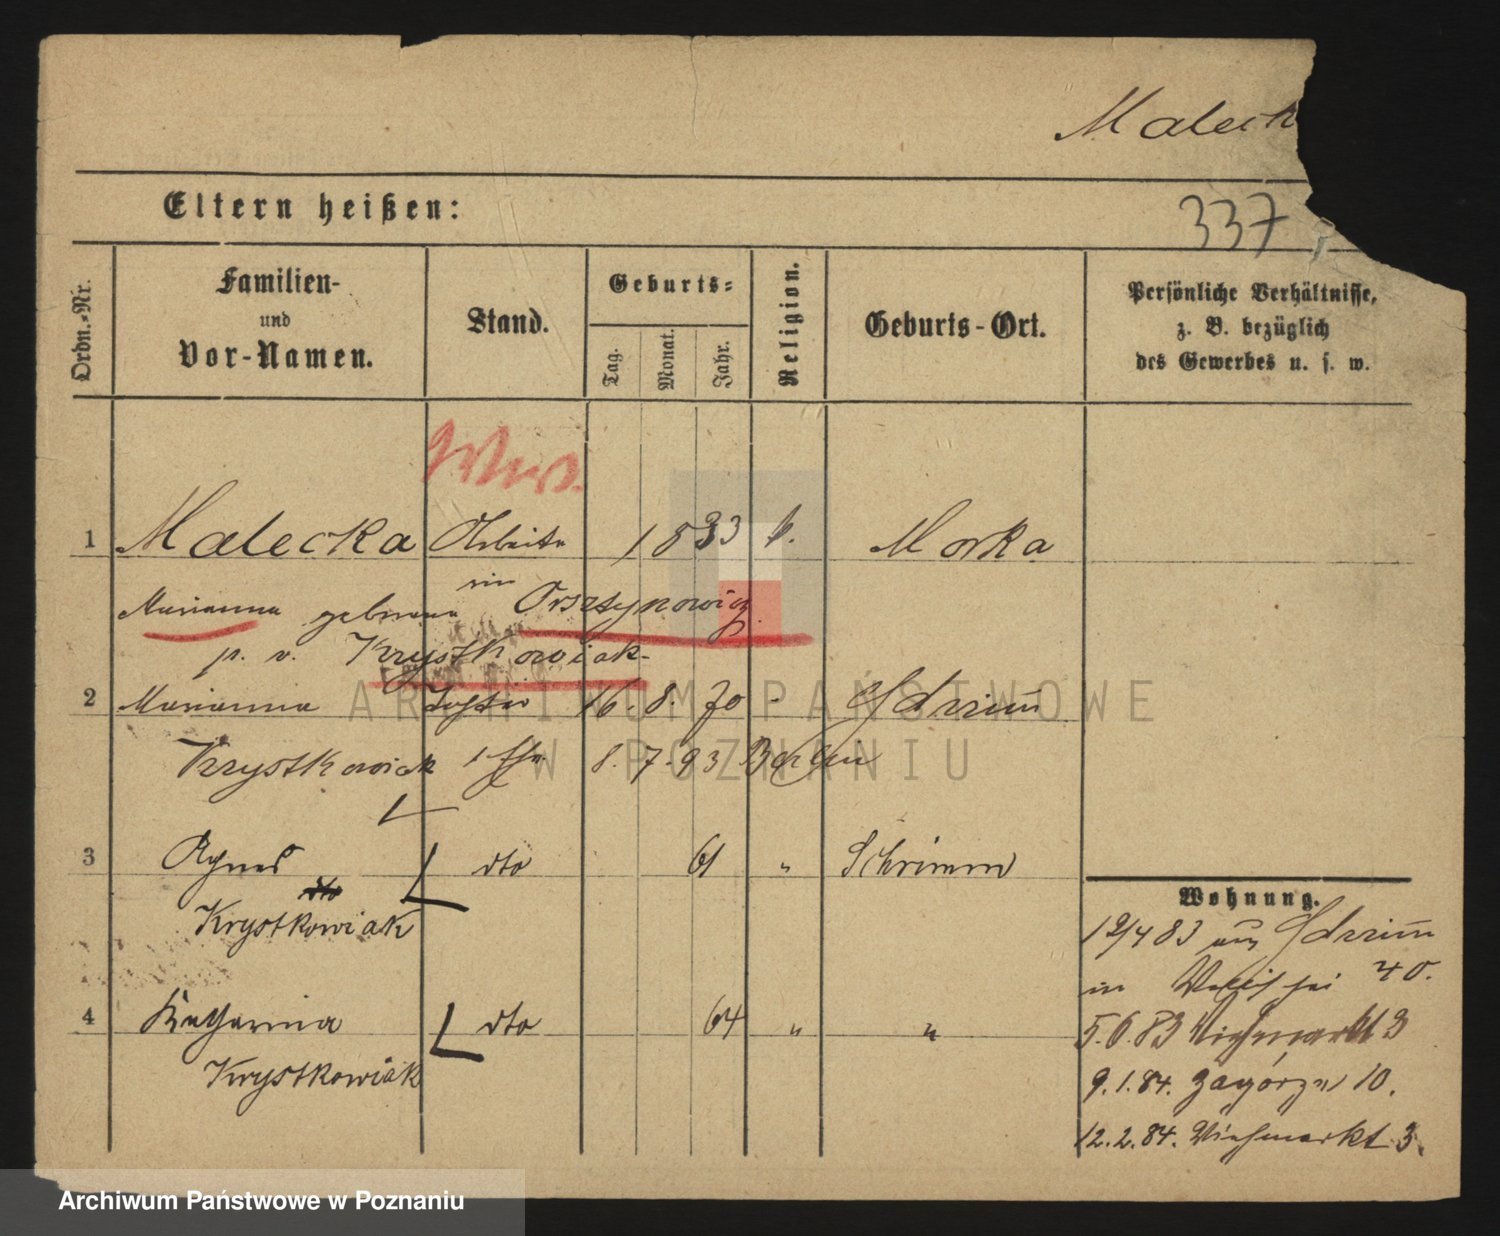 Maleck
Eltern heißen:
337
Ordn.-Nr.
Familien-
und
Vor-Namen.
Stand.
Geburts-
Tag.
Monat.
Jahr.
Religion.
Geburts-Ort.
Persönliche Verhältnisse,
z. B. bezüglich
des Gewerbes u. s. w.
Wwe.
1 Malecka Arbeite 1833 k. Morka
rin
Marianna geborene Orsztynowicz
p. v. Krystkowiak
2 Marianna Tochter 16. 8. 70 Schrimm
Krystkowiak 8. 7. 93 Berlin
3 Agnes dto 61 " Schrimm
dto
Krystkowiak
4 Katharina dto 64 " "
Krystkowiak
Wohnung.
12/4 83 aus Schrimm
in Wallischei 40.
5. 6. 83 Viehmarkt 3
9. 1. 84. Zagórze 10.
12. 2. 84. Viehmarkt 3.
ARCHIWUM PAŃSTWOWE
W POZNANIU
Archiwum Państwowe w Poznaniu